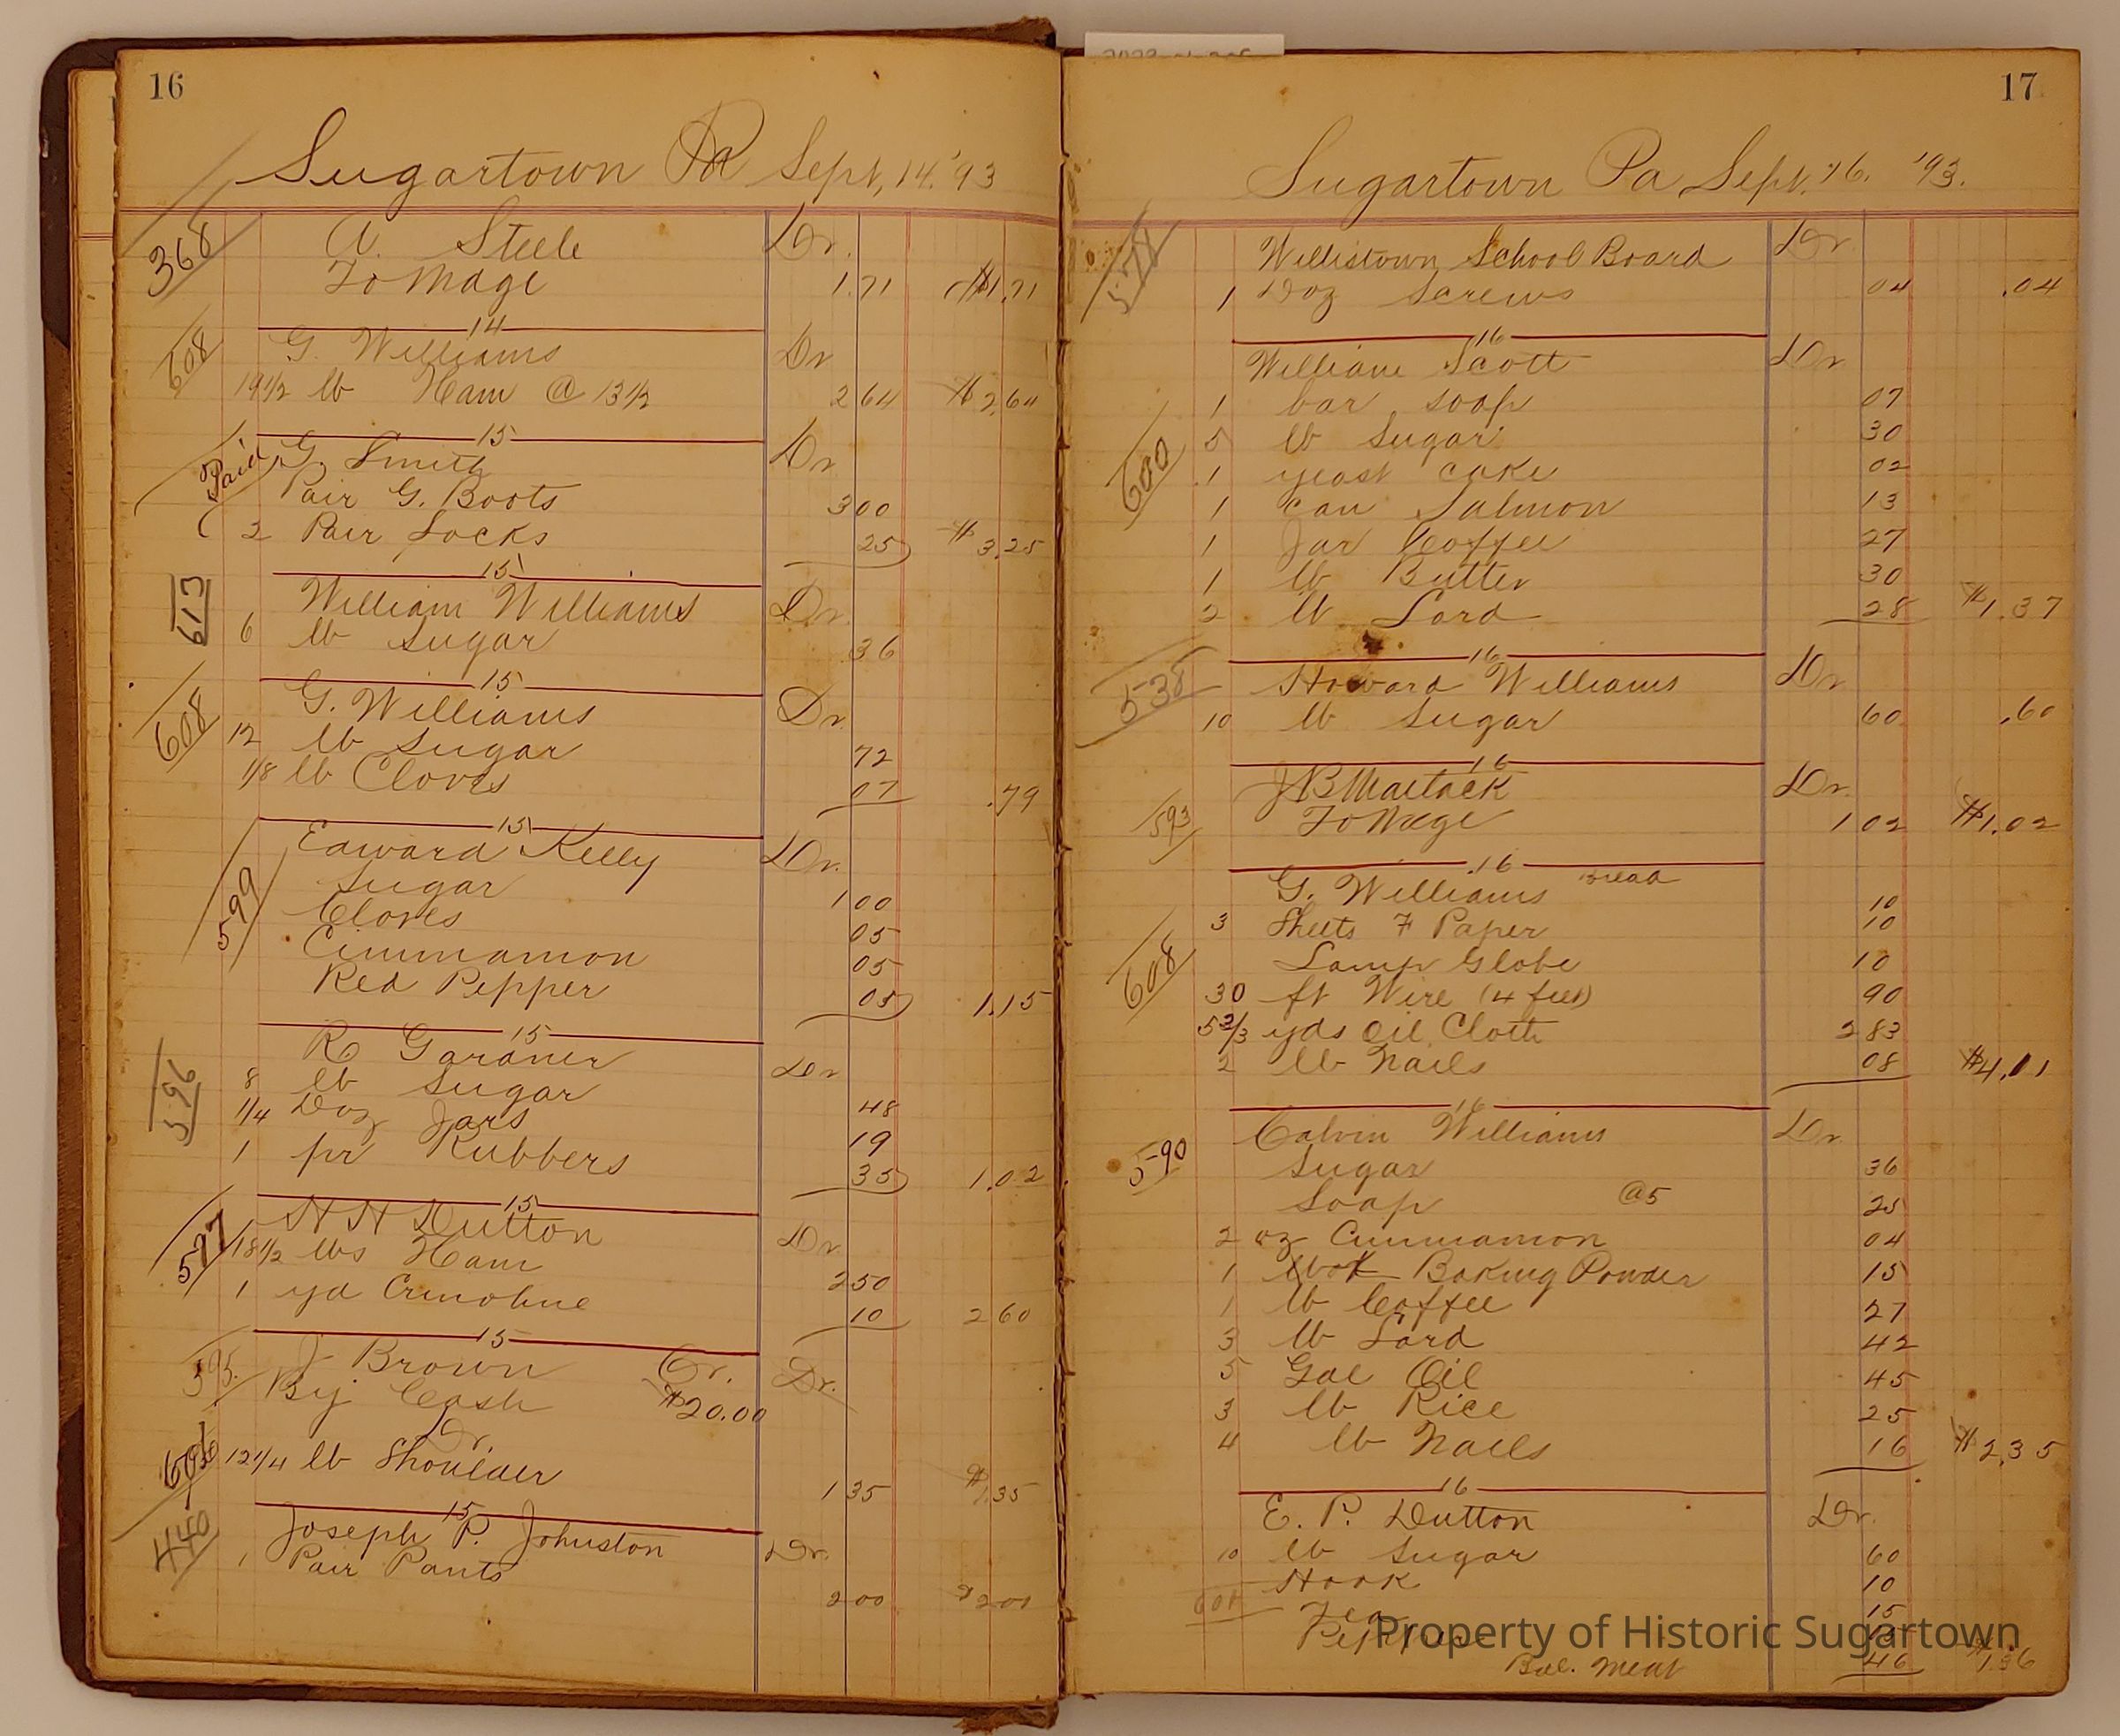 16
Sugartown Pa Sept, 14. '93
368 A. Steele Dr.
To Mdge 1.71 $1.71
14
608 G. Williams Dr
19 1/2 lb Ham @ 13 1/2 2 64 $2.64
15
Paid G. Smith Dr
Pair G. Boots 3 00
2 Pair Socks 25 $3.25
15
613 William Williams Dr.
6 lb Sugar 36
15
608 G. Williams Dr
12 lb Sugar 72
1/8 lb Cloves 07 .79
15
599 Edward Kelly Dr.
Sugar 1 00
Cloves 05
Cinnamon 05
Red Pepper 05 1.15
15
596 R Gardner Dr
8 lb Sugar 48
1/4 Doz Jars 19
1 pr Rubbers 35 1.02
15
577 H H Dutton Dr
18 1/2 lbs Ham 2 50
1 yd Crinoline 10 2 60
15
595 J Brown Cr. Dr.
By Cash $20.00
Dr.
12 1/4 lb Shoulder 1 35 $1.35
15
440 Joseph P. Johnston Dr.
1 Pair Pants 2 00 $2 00
17
Sugartown Pa Sept. 16. '93.
578 Willistown School Board Dr
1 Doz Screws 04 .04
16
William Scott Dr
1 bar soap 07
5 lb Sugar 30
600 1 yeast cake 02
1 can Salmon 13
1 Jar Coffee 27
1 lb Butter 30
2 lb Lard 28 $1.37
16
538 Howard Williams Dr
10 lb Sugar 60 .60
16
J B Mattack Dr.
593 To Mdge 1 02 $1.02
16
G. Williams Bread 10
3 Sheets F Paper 10
608 Lamp Globe 10
30 ft Wire (4 feet) 90
5 2/3 yds Oil Cloth 2 83
2 lb Nails 08 $4.11
16
590 Calvin Williams Dr
Sugar 36
Soap @5 25
2 oz Cinnamon 04
1 Baking Powder 15
1 lb Coffee 27
3 lb Lard 42
5 Gal Oil 45
3 lb Rice 25
4 lb Nails 16 $2.35
16
E. P. Dutton Dr.
10 lb Sugar 60
Hook 10
601 Tea 15
Pepper
Bal. Meat 46
Property of Historic Sugartown